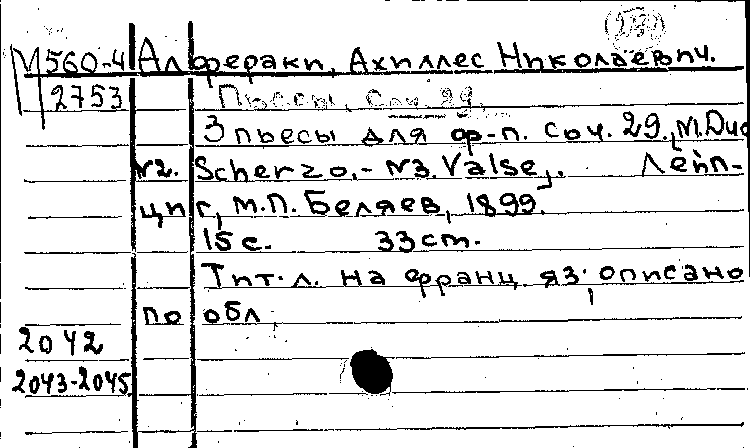 М560-4 Алфераки, Ахиллес Николаевич.
2753 Пьесы, Соч. 29.
3 пьесы для ф-п. соч. 29.
№2. Scherzo.- №3. Valse. Лейп-
циг, М.П. Беляев, 1899.
15с. 33см.
Тит. л. на франц. яз. описано
по обл.
2042
2043-2045